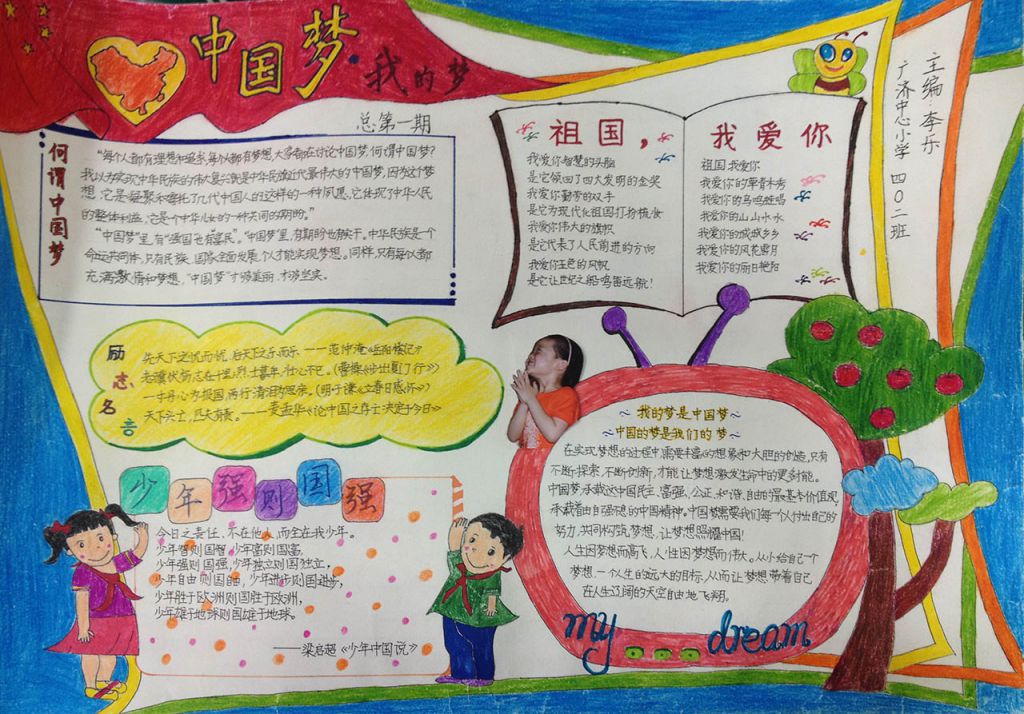 中国梦·我的梦
总第一期
主编：李乐
广济中心小学 四0二班
何谓中国梦
“每个人都有理想和追求,每个人都有梦想,大家都在讨论中国梦,何谓中国梦?
我以为实现中华民族的伟大复兴就是中华民族近代最伟大的中国梦,因为这个梦
想,它是凝聚和寄托了几代中国人的这样的一种夙愿,它体现了中华人民
的整体利益,它是个中华儿女的一种共同的期盼。”
“中国梦”里,有“强国”也有“富民”。“中国梦”里,有期盼也有实干。中华民族是一个
命运共同体,只有民族、国家全面发展,个人才能实现梦想。同样,只有每个人都
充满激情和梦想,“中国梦”才够美丽,才够坚实。
祖国,
我爱你智慧的头脑
是它领回了四大发明的金奖
我爱你勤劳的双手
是它为现代化祖国打扮梳妆
我爱你伟大的旗帜
是它代表了人民前进的方向
我爱你五色的风帆
是它让世纪之船鸣笛远航!
我爱你
祖国,我爱你
我爱你的草青木秀
我爱你的鸟鸣蛙唱
我爱你的山山水水
我爱你的城城乡乡
我爱你的风花雪月
我爱你的丽日艳阳
励志名言
先天下之忧而忧,后天下之乐而乐。——范仲淹《岳阳楼记》
老骥伏枥,志在千里;烈士暮年,壮心不已。(曹操《步出夏门行》)
一寸丹心为报国,两行清泪为思亲。(明·于谦《立春日感怀》)
天下兴亡,匹夫有责。——麦孟华《论中国之存亡决定于今日》
少年强则国强
今日之责任,不在他人,而全在我少年。
少年智则国智,少年富则国富,
少年强则国强,少年独立则国独立,
少年自由则国自由,少年进步则国进步,
少年胜于欧洲则国胜于欧洲,
少年雄于地球则国雄于地球。
——梁启超《少年中国说》
~ 我的梦是中国梦 ~
~ 中国的梦是我们的梦 ~
在实现梦想的过程中,需要丰富的想象和大胆的创造,只有
不断探索,不断创新,才能让梦想激发生命中的更多能。
中国梦,承载这中国民主、富强、公正、和谐、自由的最基本价值观,
承载着由自强不息的中国精神。中国梦需要我们每一个人付出自己的
努力,共同构筑梦想,让梦想照耀中国!
人生因梦想而高飞,人性因梦想而伟大。从小给自己一个
梦想,一个人生的远大的目标,从而让梦想带着自己
在人生辽阔的天空自由地飞翔。
my dream